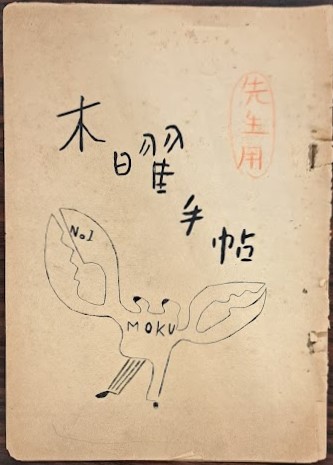 木曜手帖
先生用
No.1
MOKU